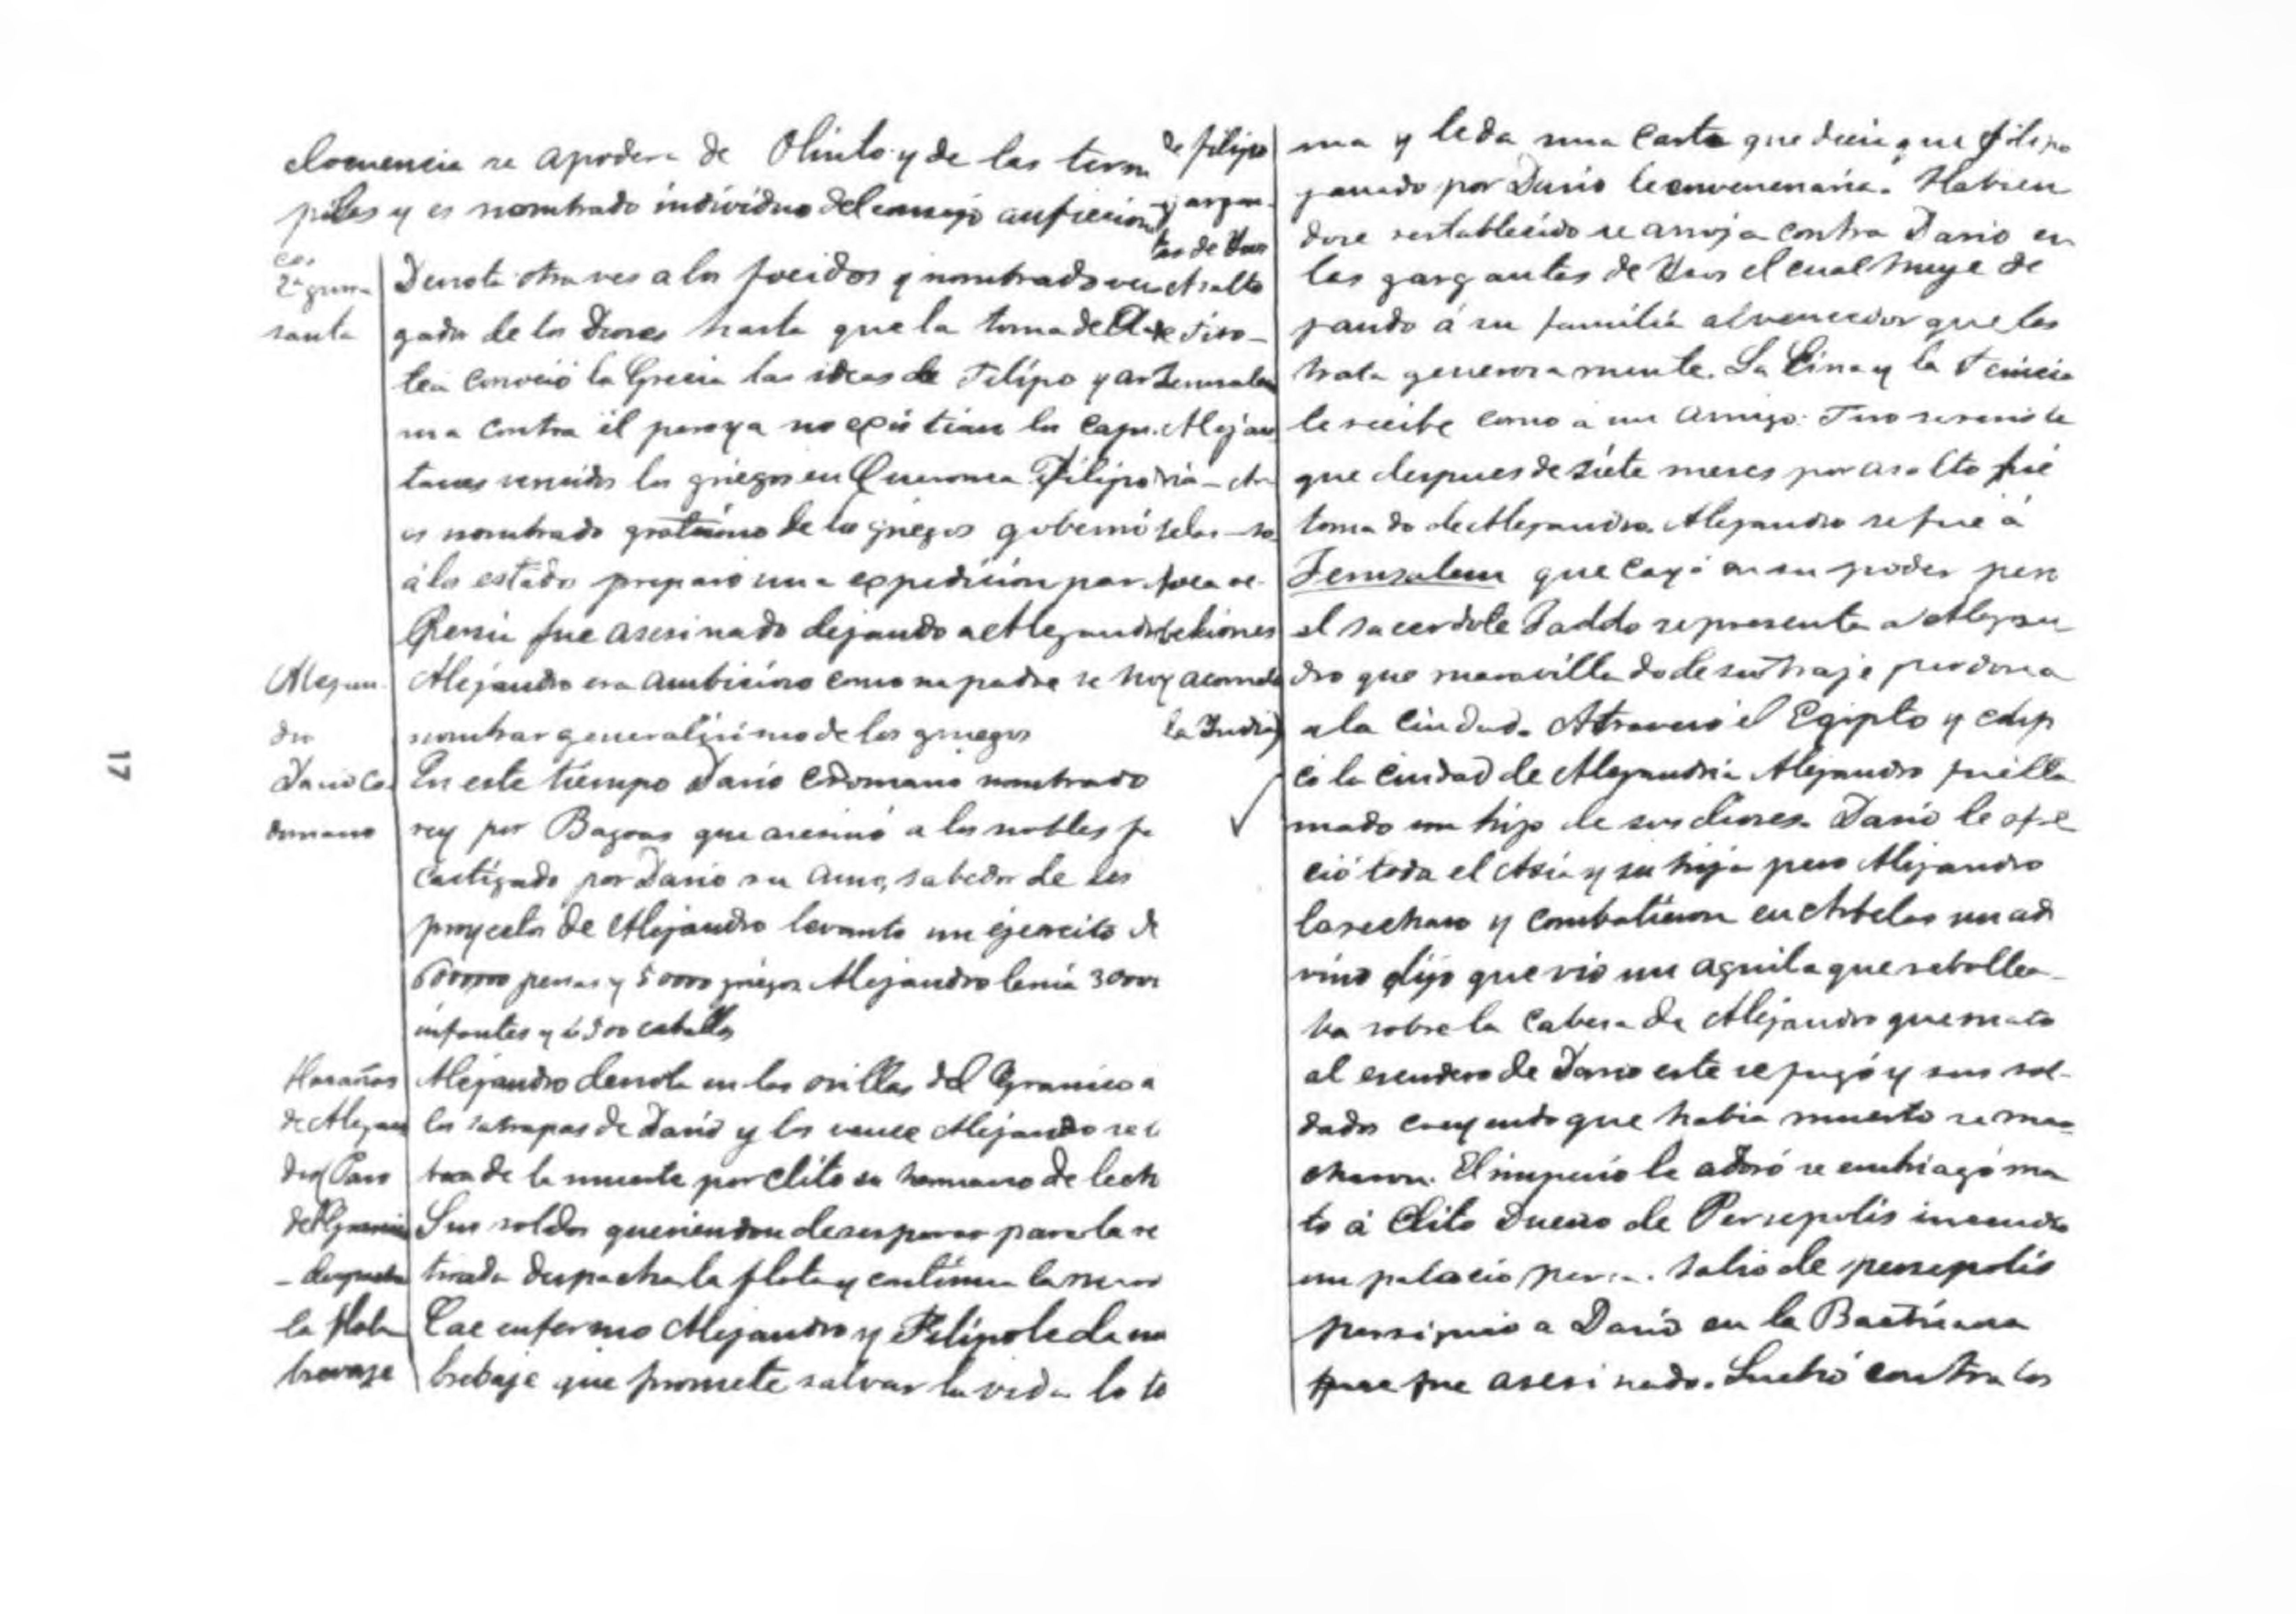 elocuencia se apodera de Olinto y de las term
pilas y es nombrado individuo del consejo anfiction
cos
2ª guerra
santa
Derrota otra ves a los focidos y nombrado ven
gador de los Dioses hasta que la toma de Ela
tea conoció la Grecia las ideas de Filipo y ar
ma contra él pero ya no existian los capi
tanes vencidos los griegos en Queronea Filipo
es nombrado de los griegos gobernó
á los estados preparó una expedición par
Persia fue asesinado dejando a Alejandro
Alejan
dro
Alejandro era ambicioso como su padre se hizo
nombrar generalisimo de los griegos
Dario Co
domano
En este tiempo Dario Codomano nombrado
rey por Bagoas que asesinó a los nobles fu
castigado por Dario su amo, sabedor de los
proyectos de Alejandro levanto un ejercito de
600000 persas y 50000 griegos Alejandro tenía 30000
infantes y 4500 caballos
Hazañas
de Alejan
dro Paso
del Granico
– despacha
la flota
brevaje
Alejandro derrota en las orillas del Granico a
los satrapas de Dario y los vence Alejandro se li
bra de la muerte por Clito su hermano de lech
Sus soldos queriendon desesperar para la re
tirada despacha la flota y continua la
Cae enfermo Alejandro y Filipo le da un
brebaje que promete salvar la vida lo to
de filipo
gargan
tas de Isus
Asalto
de Tiro –
Jerusalem
Alejan
dria – Ar
belas – so
foca re
beliones
acomete
la India)
ma y le da una carta que decia que filipo
ganado por Dario le envenenaria. Habien
dose restablecido se arroja contra Dario en
las gargantas de Isus el cual huye de
jando á su familia al vencedor que les
trata generosamente. La Siria y la Fenicia
le recibe como a un amigo. Tiro se resiste
que despues de siete meses por asalto fué
tomado de Alejandro. Alejandro se fue á
Jerusalem que cayó en su poder pero
el sacerdote Jaddo se presenta a Alejan
dro que maravillado de su traje perdona
a la ciudad. Atravesó el Egipto y edifi
có la ciudad de Alejandria Alejandro fué lla
mado un hijo de sus dioses. Dario le ofre
ció toda el Asia y su hija pero Alejandro
la rechazo y combatieron en Arbelas un adi
vino dijo que vio un aguila que rebollea
ba sobre la cabesa de Alejandro que mato
al escudero de Dario este se fugó y sus sol
dados creyendo que habia muerto se mar
charon. El imperio le adoró se embriagó ma
to á Clito Dueño de Persepolis incendio
un palacio persa. Salio de persepolis
persiguio a Dario en la Bactriana
que fue asesinado. Luchó contra los
17